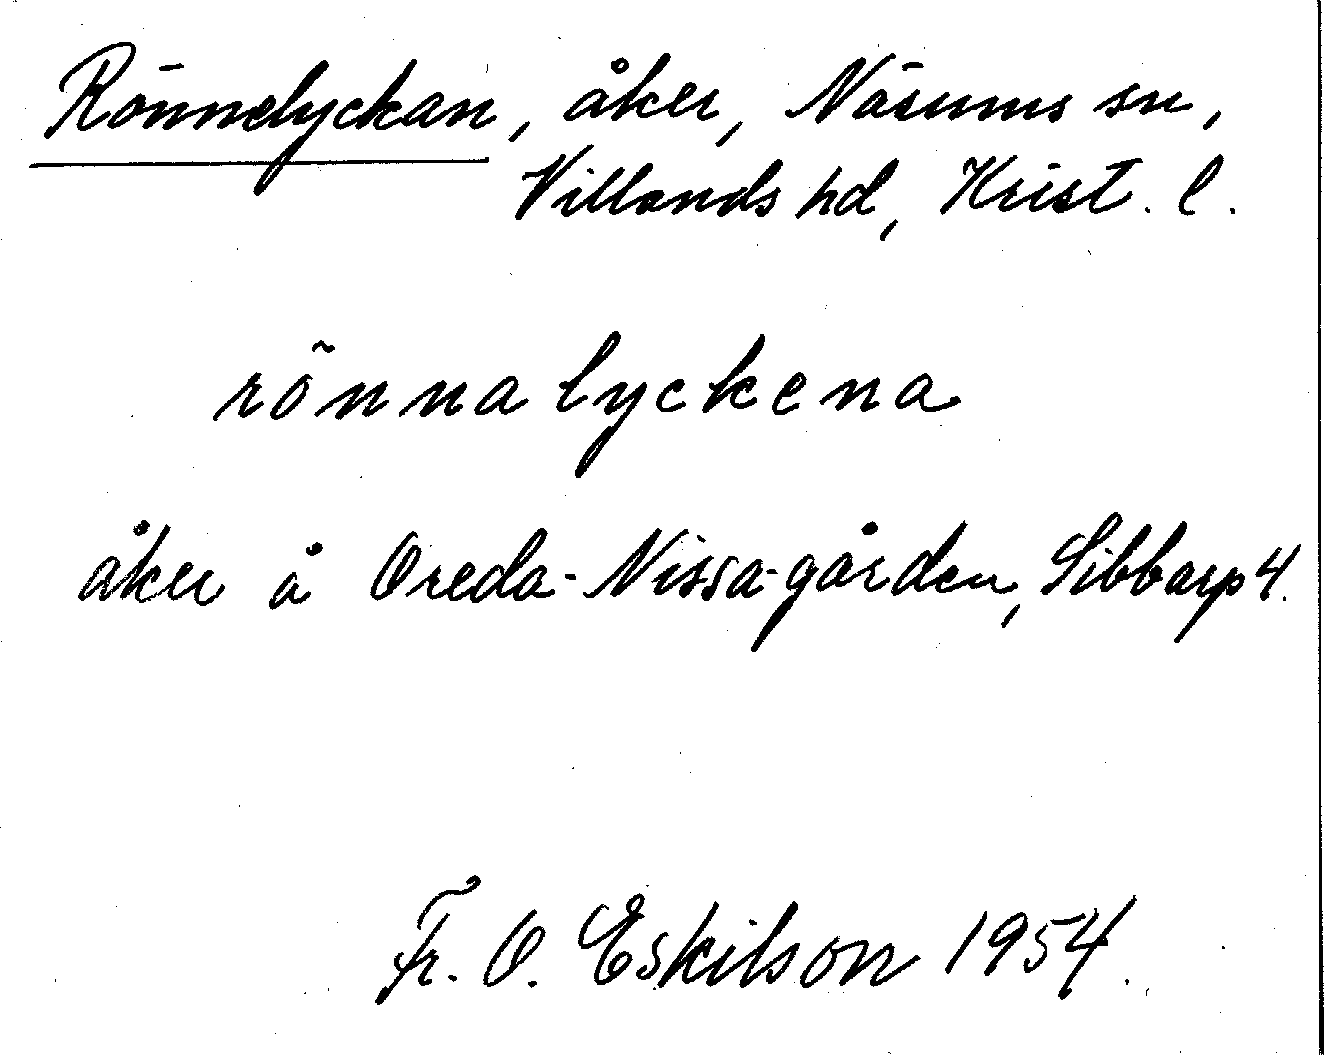 Rönnelyckan, åker, Näsums sn,
Villands hd, Krist. l.
rönnalyckena
åker å Oreda-Nissa-gården, Sibbarp 4.
Fr. O. Eskilson 1954.